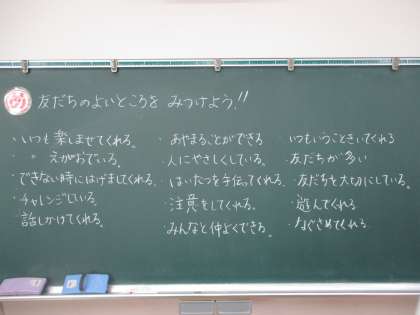 友だちのよいところを みつけよう!!
・いつも楽しませてくれる。
・ 〃 えがおでいる。
・できない時にはげましてくれる。
・チャレンジしている。
・話しかけてくれる。
・あやまることができる
・人にやさしくしている。
・はいたつを手伝ってくれる。
・注意をしてくれる。
・みんなと仲よくできる。
・いつもいうこときいてくれる
・友だちが多い
・友だちを大切にしている。
・遊んでくれる
・なぐさめてくれる。